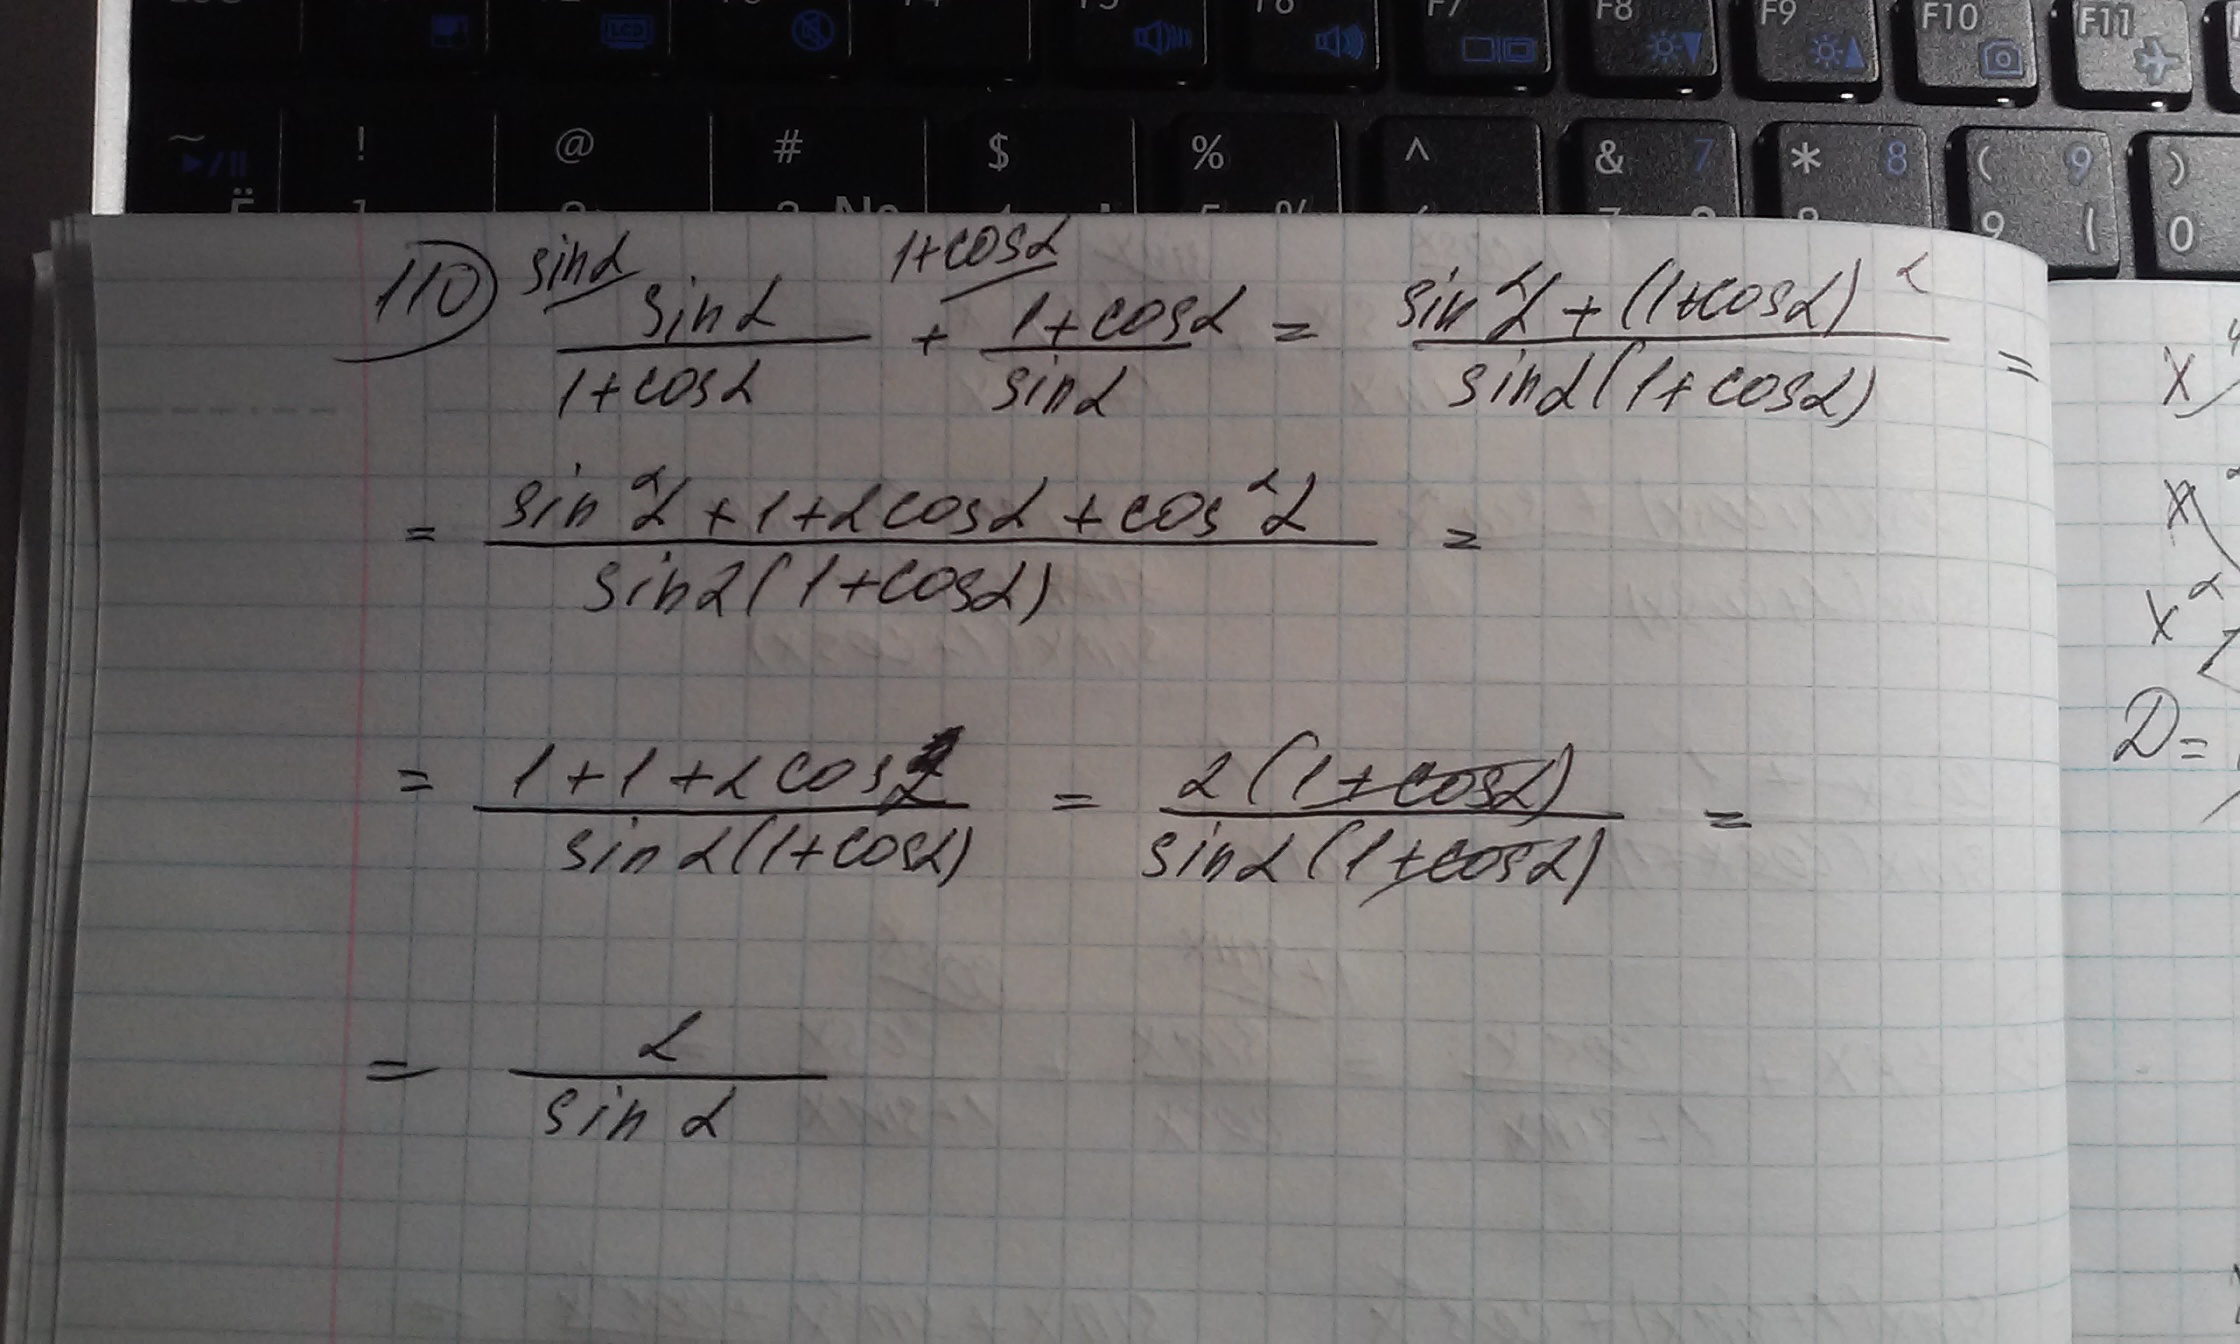 F7 F8 F9 F10 F11
~ ! @ # $ % ^ & 7 * 8 ( 9 )
9 ( 0
110) sinα 1+cosα
sinα/(1+cosα) + (1+cosα)/sinα = (sin²α + (1+cosα)²)/(sinα(1+cosα)) =
= (sin²α + 1 + 2cosα + cos²α)/(sinα(1+cosα)) =
= (1+1+2cosα)/(sinα(1+cosα)) = 2(1+cosα)/(sinα(1+cosα)) =
= 2/sinα
x
x
x²
D=